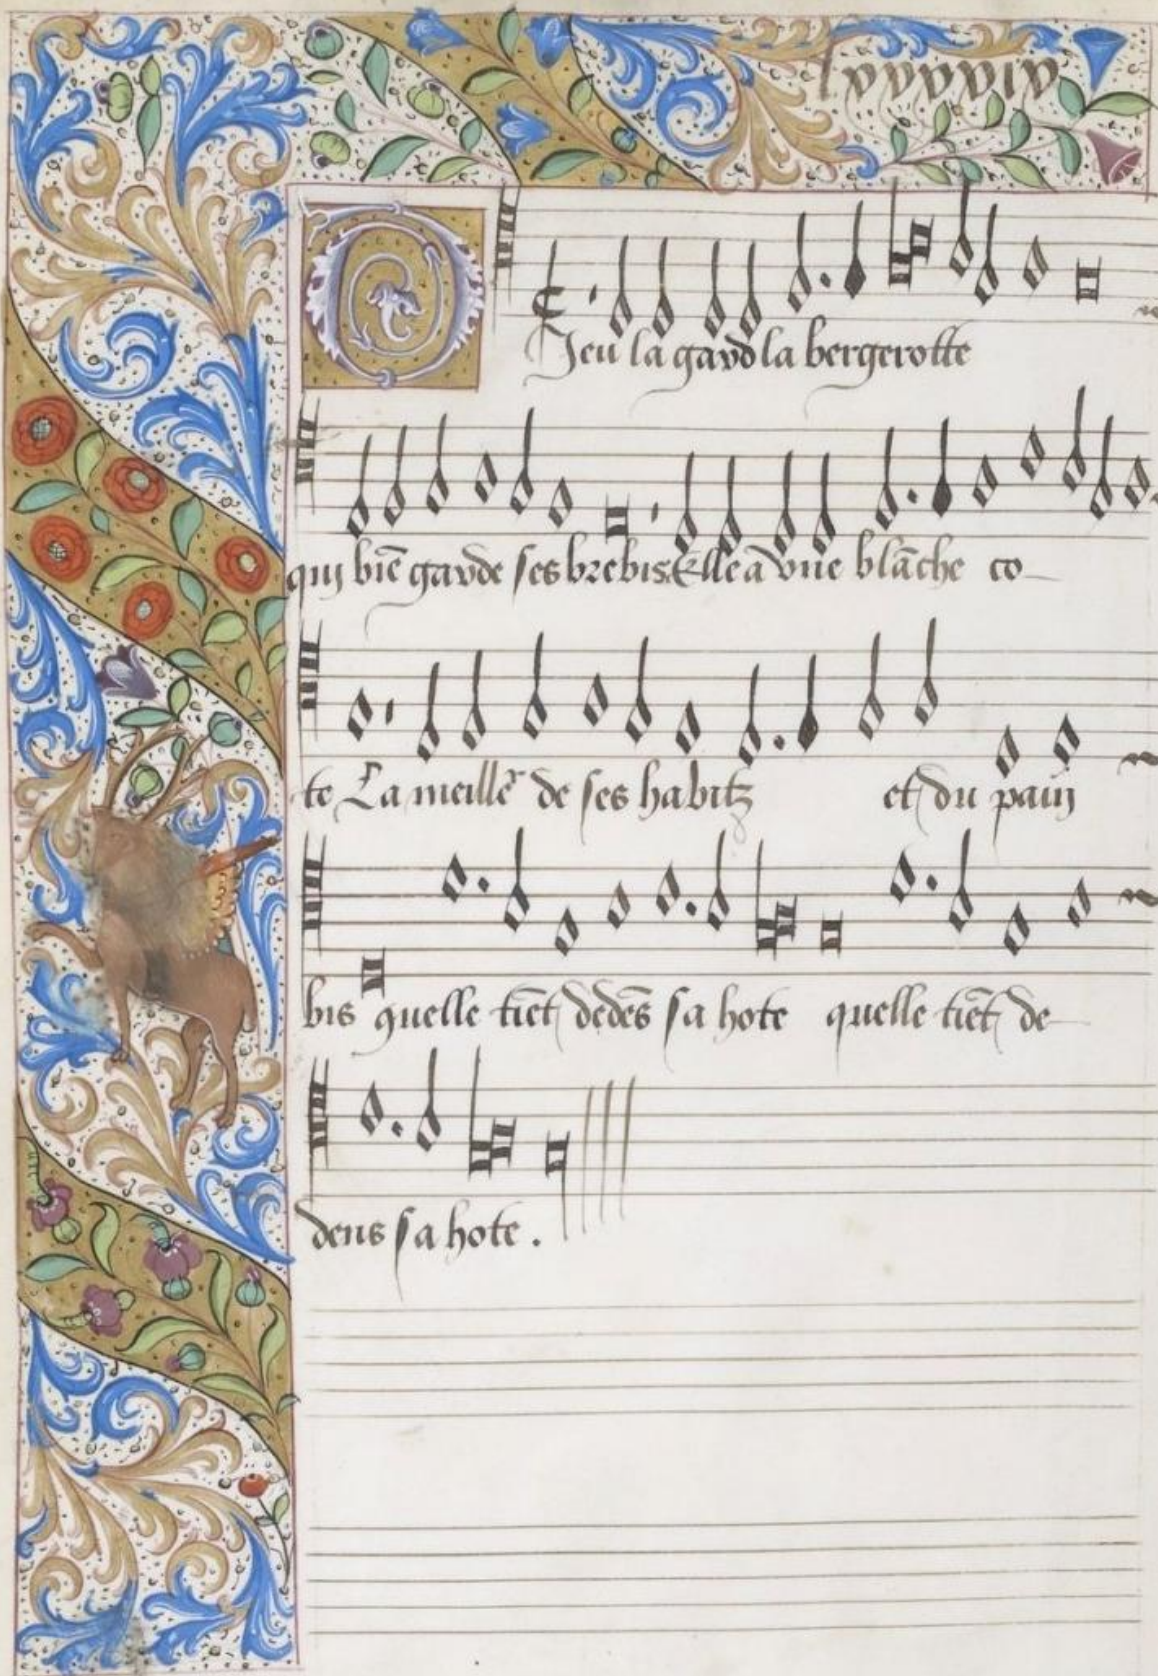 lxxxxiv
Dieu la gard la bergerotte
qui biē garde ses brebis. Elle a vne blāche co-
te La meille de ses habitz et du pain
bis quelle tiēt dedēs sa hote quelle tiēt de-
dens sa hote.